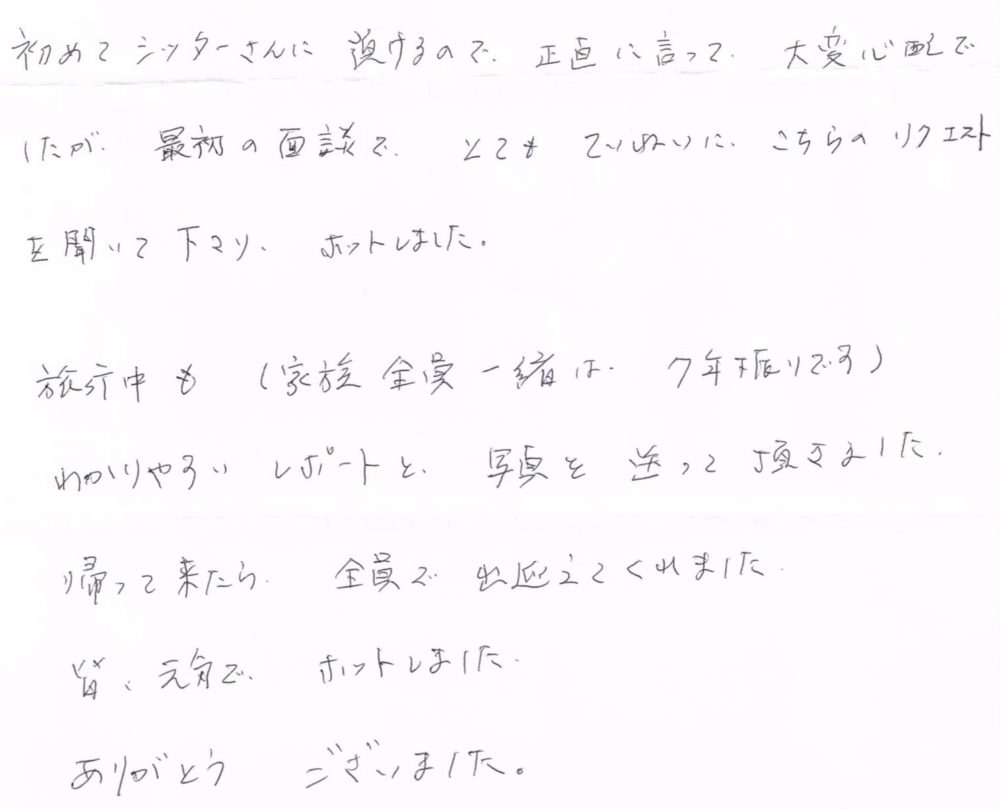 初めてシッターさんに預けるので、正直に言って、大変心配で
したが、最初の面談で、とても ていねいに、こちらの リクエスト
を聞いて下さり、ホットしました。
旅行中も (家族全員一緒は、7年振りです)
わかりやすい レポートと、写真を 送って頂きました。
帰って来たら、全員で 出迎えてくれました。
皆、元気で、ホットしました。
ありがとう ございました。